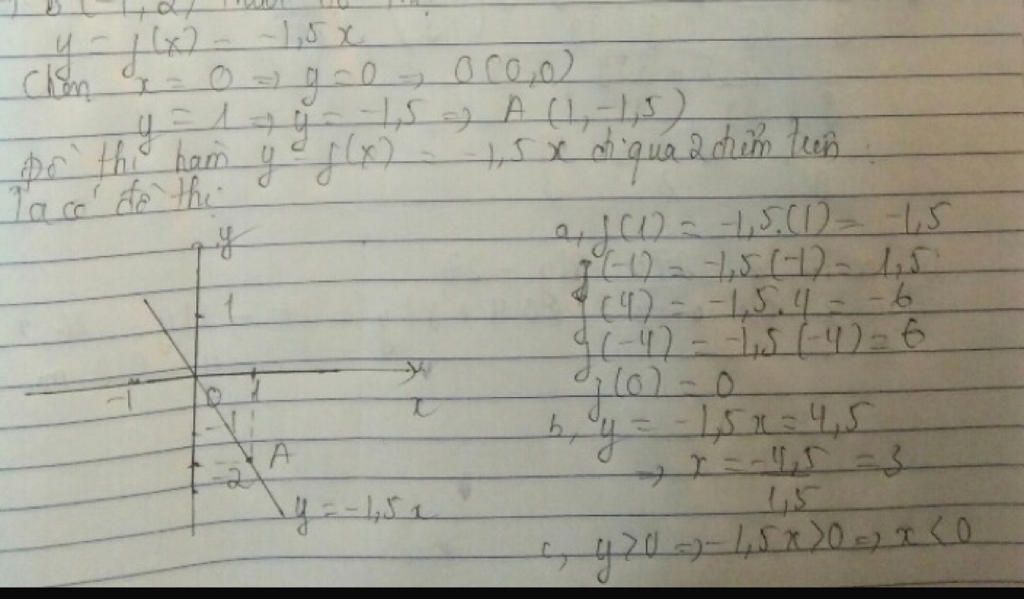 y = f(x) = -1,5x
Chọn x = 0 => y = 0 => O(0,0)
y = 1 => y = -1,5 => A (1,-1,5)
Đồ thị hàm y = f(x) = -1,5x đi qua 2 điểm trên.
Ta có đồ thị:
y
1
-1
0
1
x
-1
A
-2
y = -1,5x
a, f(1) = -1,5.(1) = -1,5
f(-1) = -1,5.(-1) = 1,5
f(4) = -1,5.4 = -6
f(-4) = -1,5(-4) = 6
f(0) = 0
b, y = -1,5x = 4,5
=> x = -4,5/1,5 = 3
c, y>0 => -1,5x>0 => x<0